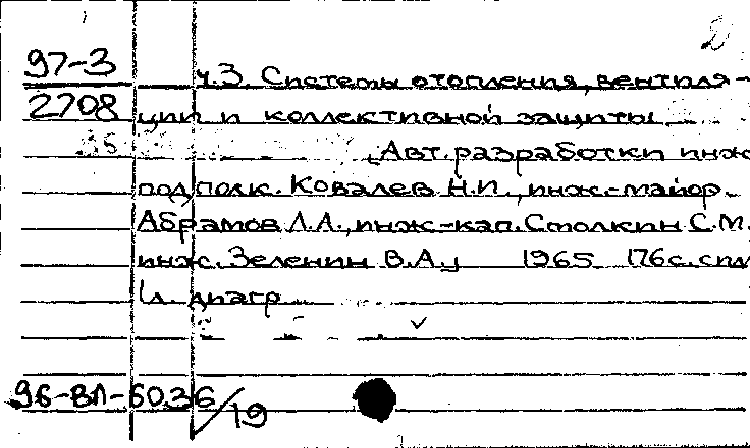 97-3
2708
ч.3. Системы отопления, вентиля-
ции и коллективной защиты
Авт. разработки инж
подполк. Ковалев Н.П., инж.-майор
Абрамов Л.А., инж-кап. Столкин С.М.
инж. Зеленин В.А., 1965 176с. спл
1л. диагр
96-ВЛ-6036/19